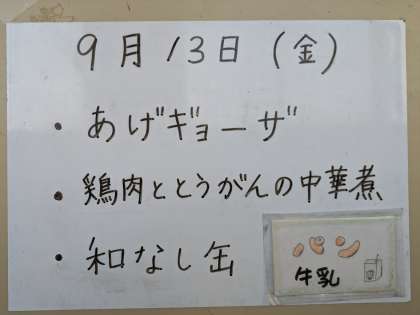 9月13日(金)
・あげギョーザ
・鶏肉ととうがんの中華煮
・和なし缶
パン
牛乳